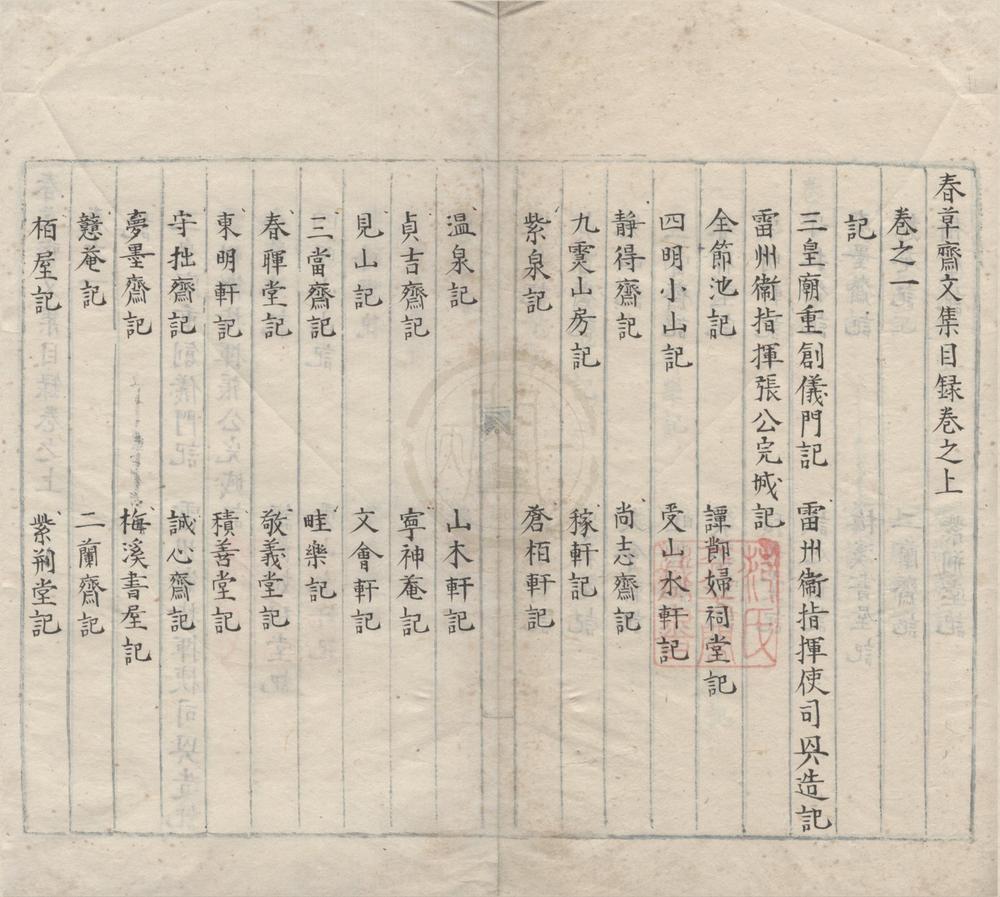 春草齋文集目録卷之上
卷之一
記
三皇廟重創儀門記　雷州衞指揮使司興造記
雷州衞指揮張公完城記
全節池記　譚節婦祠堂記
四明小山記　受山水軒記
靜得齋記　尚志齋記
九霙山房記　稼軒記
紫泉記　蒼栢軒記
温泉記　山木軒記
貞吉齋記　寧神菴記
見山記　文會軒記
三當齋記　畦樂記
春暉堂記　敬義堂記
東明軒記　積善堂記
守拙齋記　誠心齋記
夢墨齋記　梅溪書屋記
戇菴記　二蘭齋記
栢屋記　紫荆堂記